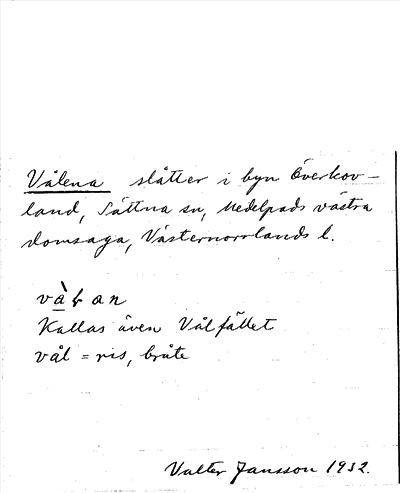 Vålena slåtter i byn Överkov-
land, Sättna sn, Medelpads västra
domsaga, Västernorrlands l.
Kallas även Vålfället
vål = ris, bråte
Valter Jansson 1932.